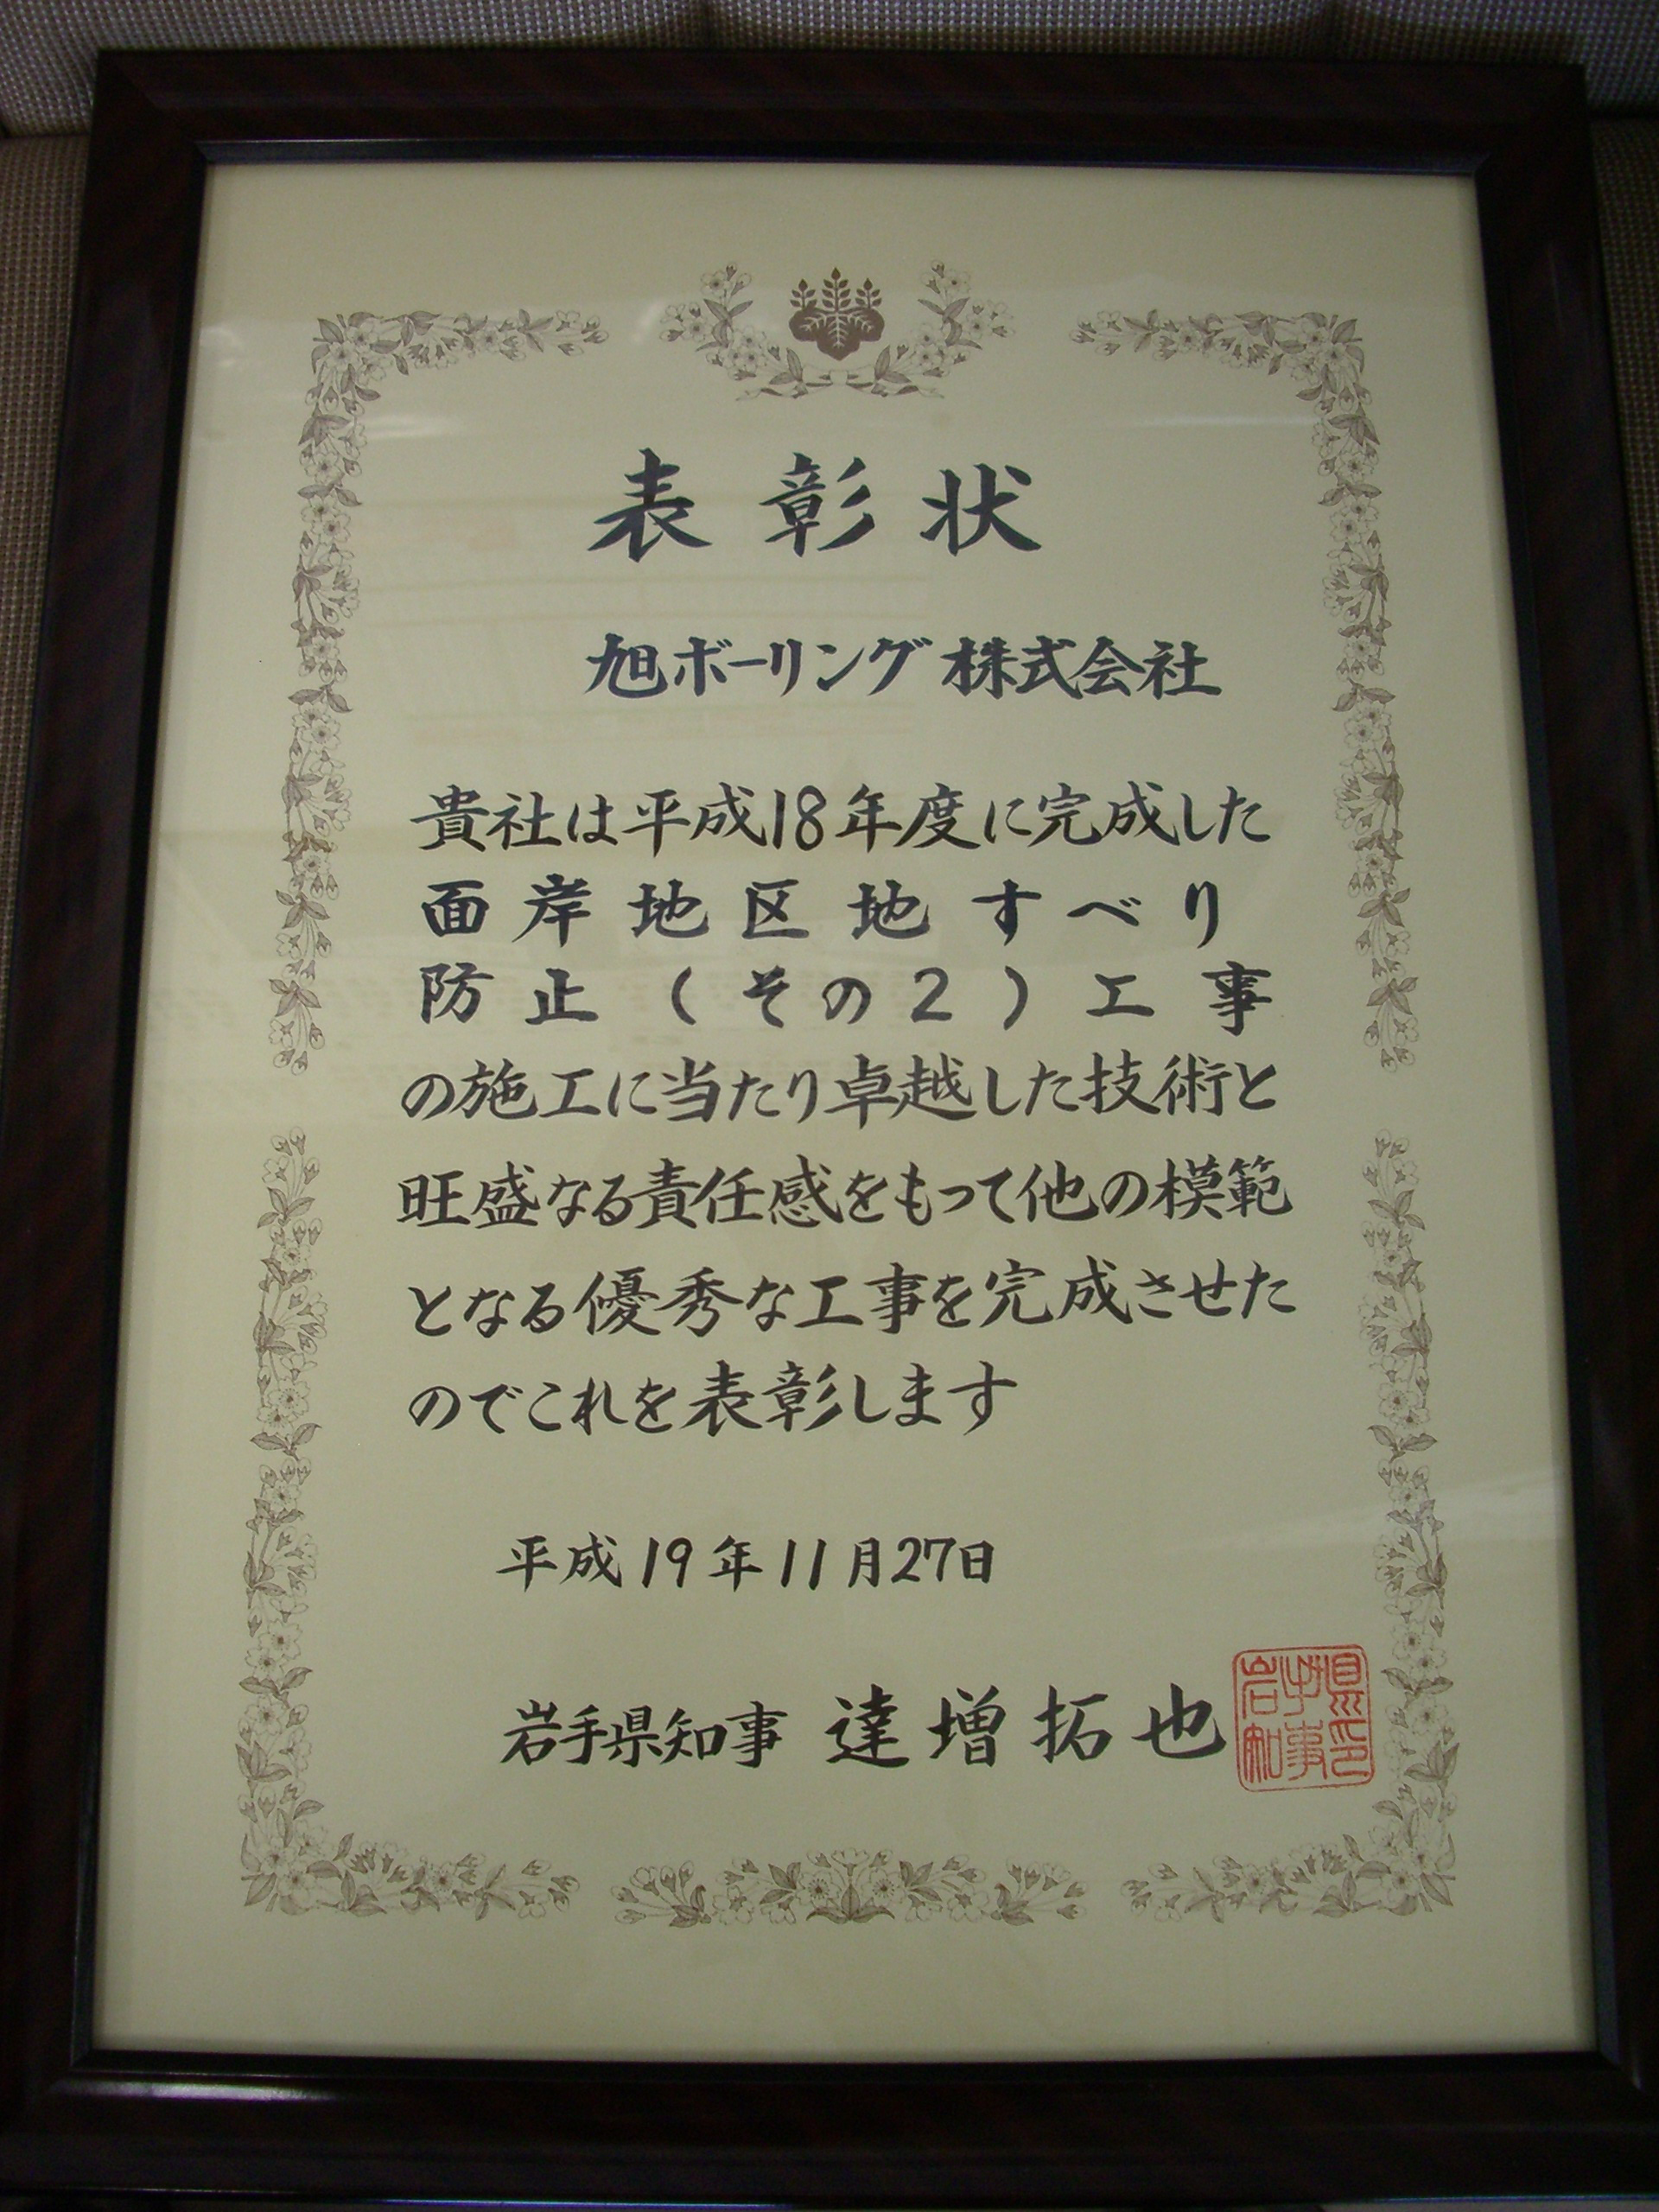 表彰状
旭ボーリング株式会社
貴社は平成18年度に完成した
面岸地区地すべり
防止(その2)工事
の施工に当たり卓越した技術と
旺盛なる責任感をもって他の模範
となる優秀な工事を完成させた
のでこれを表彰します
平成19年11月27日
岩手県知事 達増拓也
岩手県
知事印